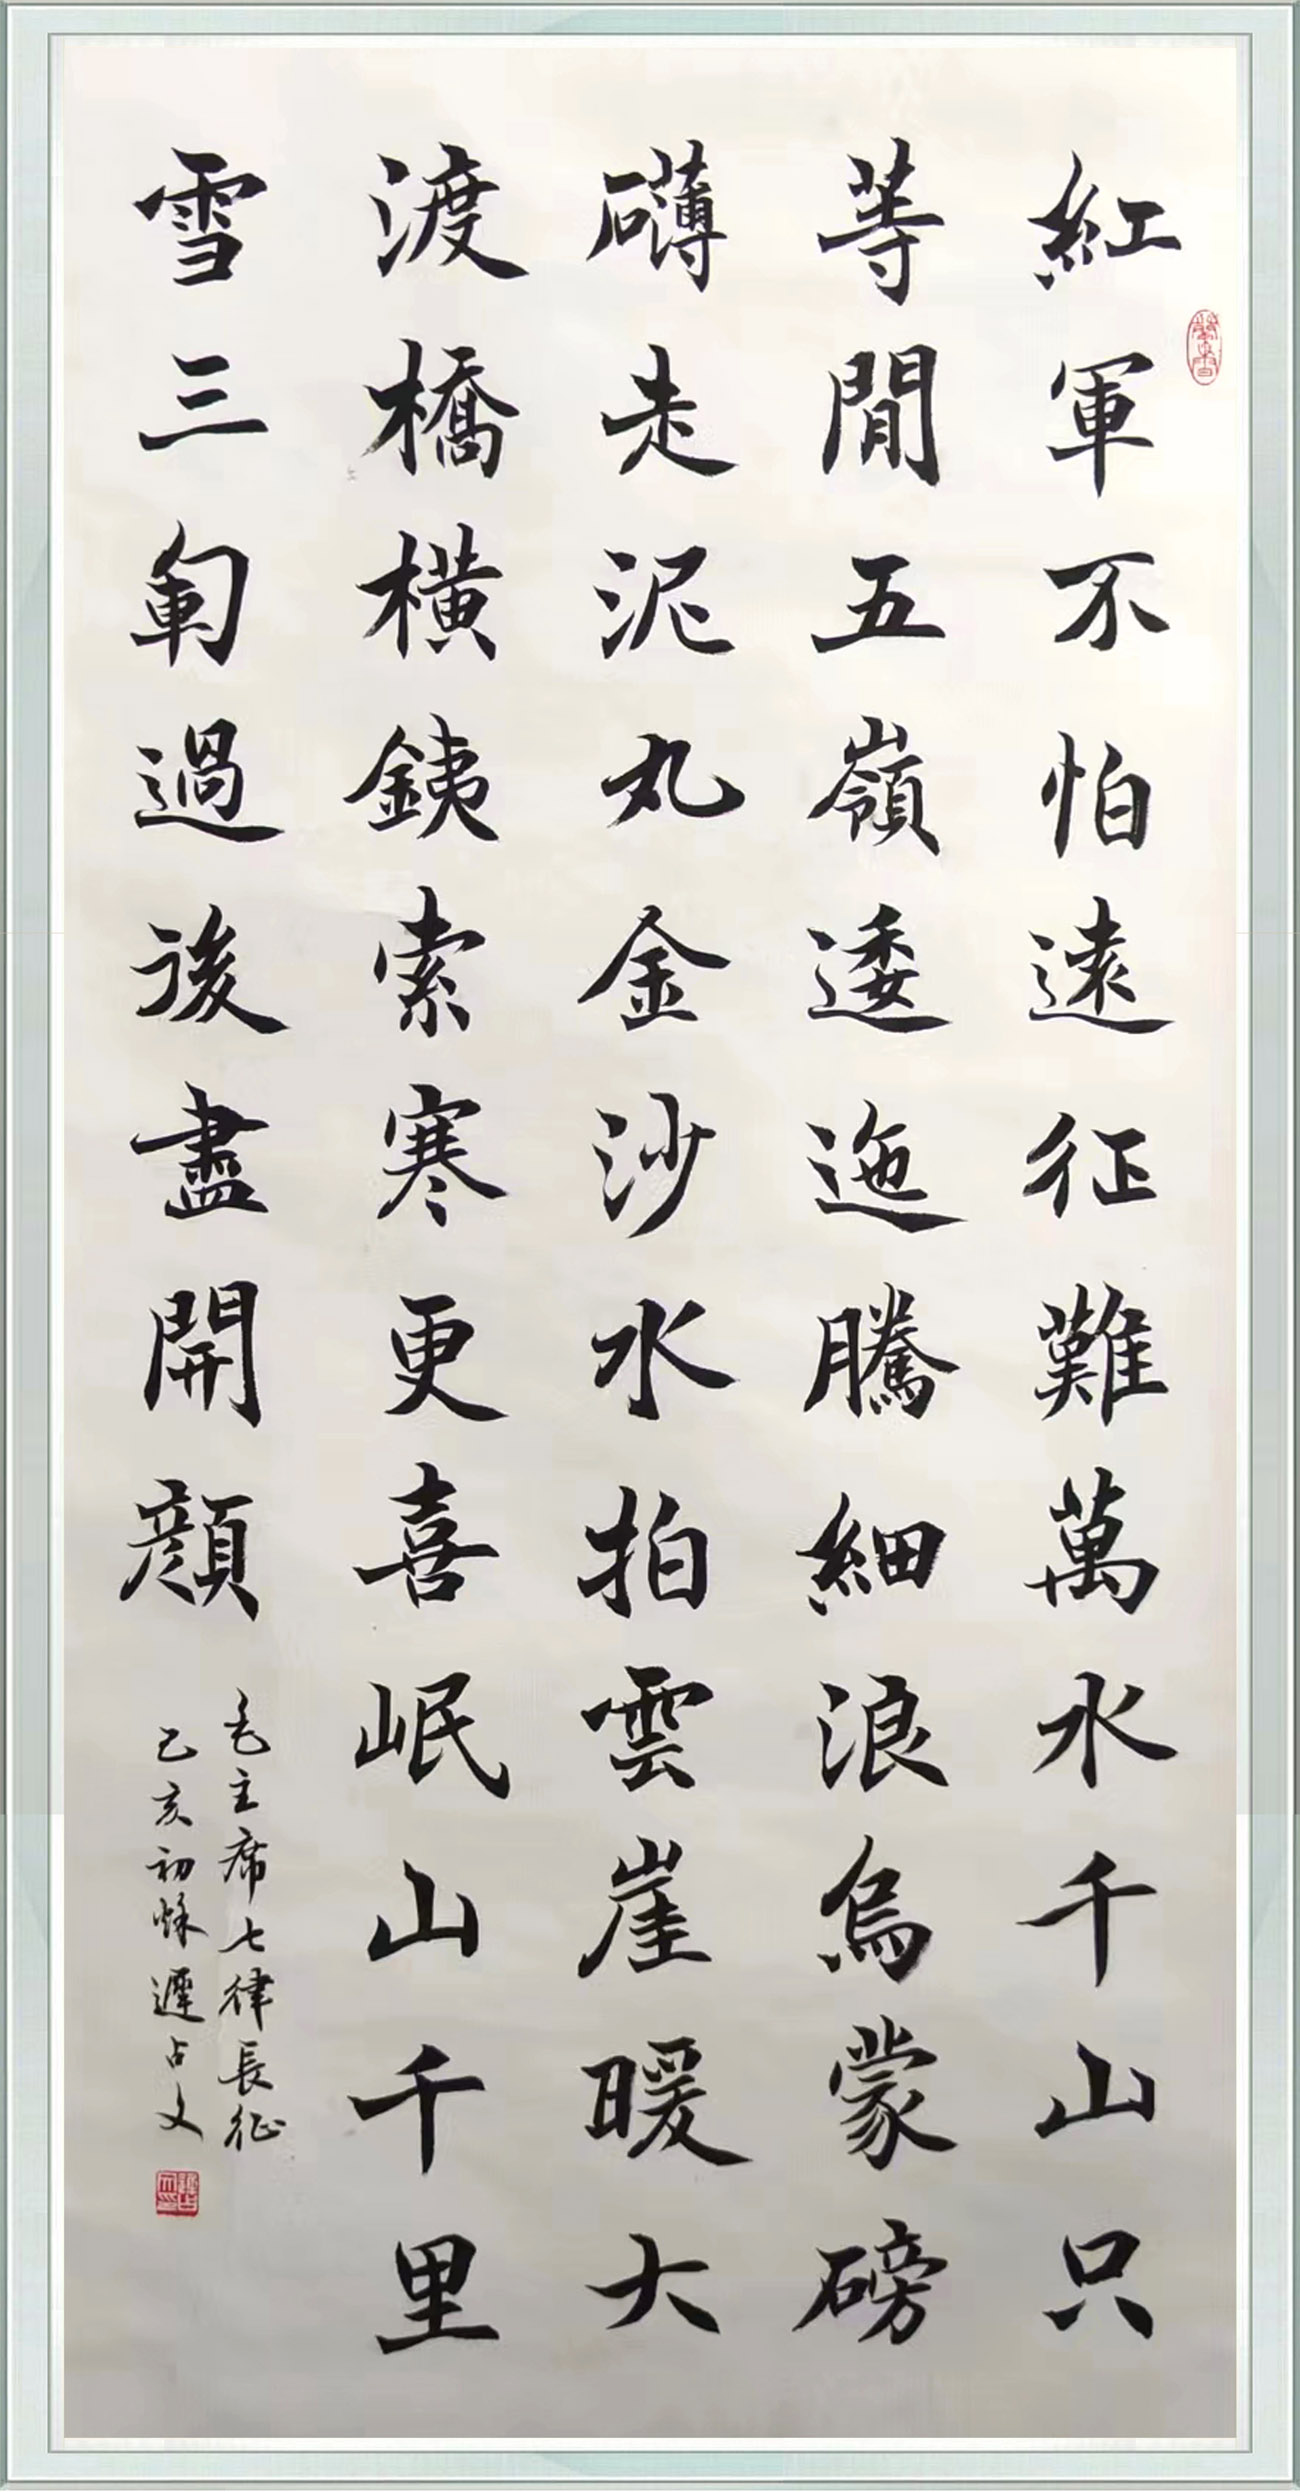 紅軍不怕遠征難萬水千山只
等閒五嶺逶迤騰細浪烏蒙磅
礴走泥丸金沙水拍雲崖暖大
渡橋橫銕索寒更喜岷山千里
雪三軍過後盡開顏
毛主席七律長征
己亥初秌遲占文